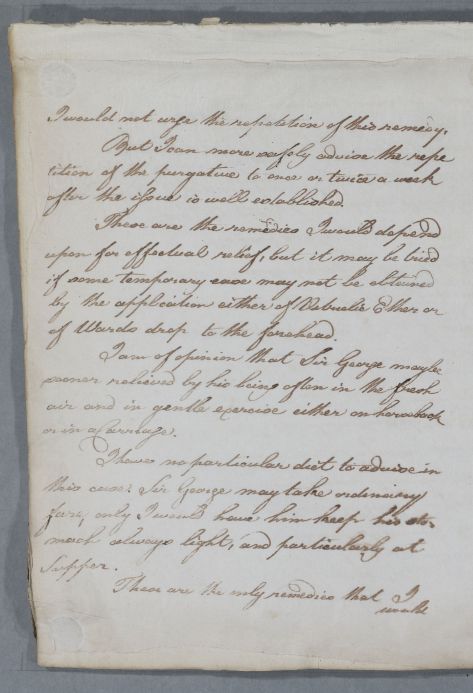 I would not urge the repetition of this remedy.
But I can more safely advise the repe
tition of the purgative to once or twice a week
after the issue is well established.
These are the remedies I would depend
upon for effectual relief, but it may be tried
if some temporary ease may not be obtained
by the application either of Vitriolic Ether or
of Wards drop to the forehead.
I am of opinion that Sir George may be
sooner relieved by his being often in the fresh
air and in gentle exercise either on horseback
or in a Carriage.
I have no particular diet to advise in
this case: Sir George may take ordinary
fare, only I would have him keep his sto-
mach always light, and particularly at
Supper.
These are the only remedies that I
would